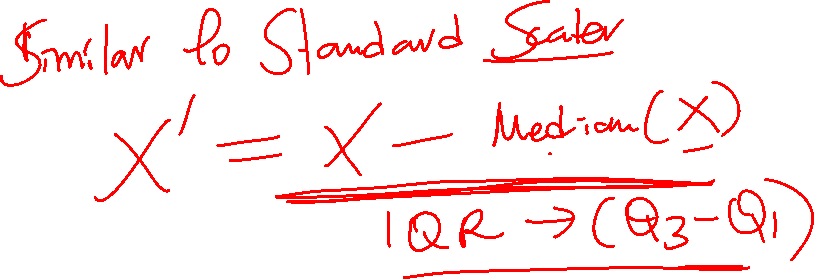 Similar to Standard Scaler
X' = X - Median(X)
IQR → (Q3-Q1)